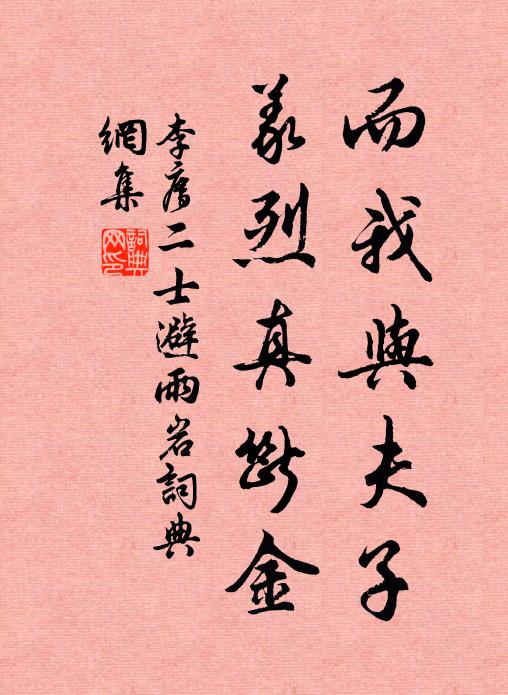 而我與夫子
義烈真斷金
李唐二士避雨岩詞典
網集
詞典
网印